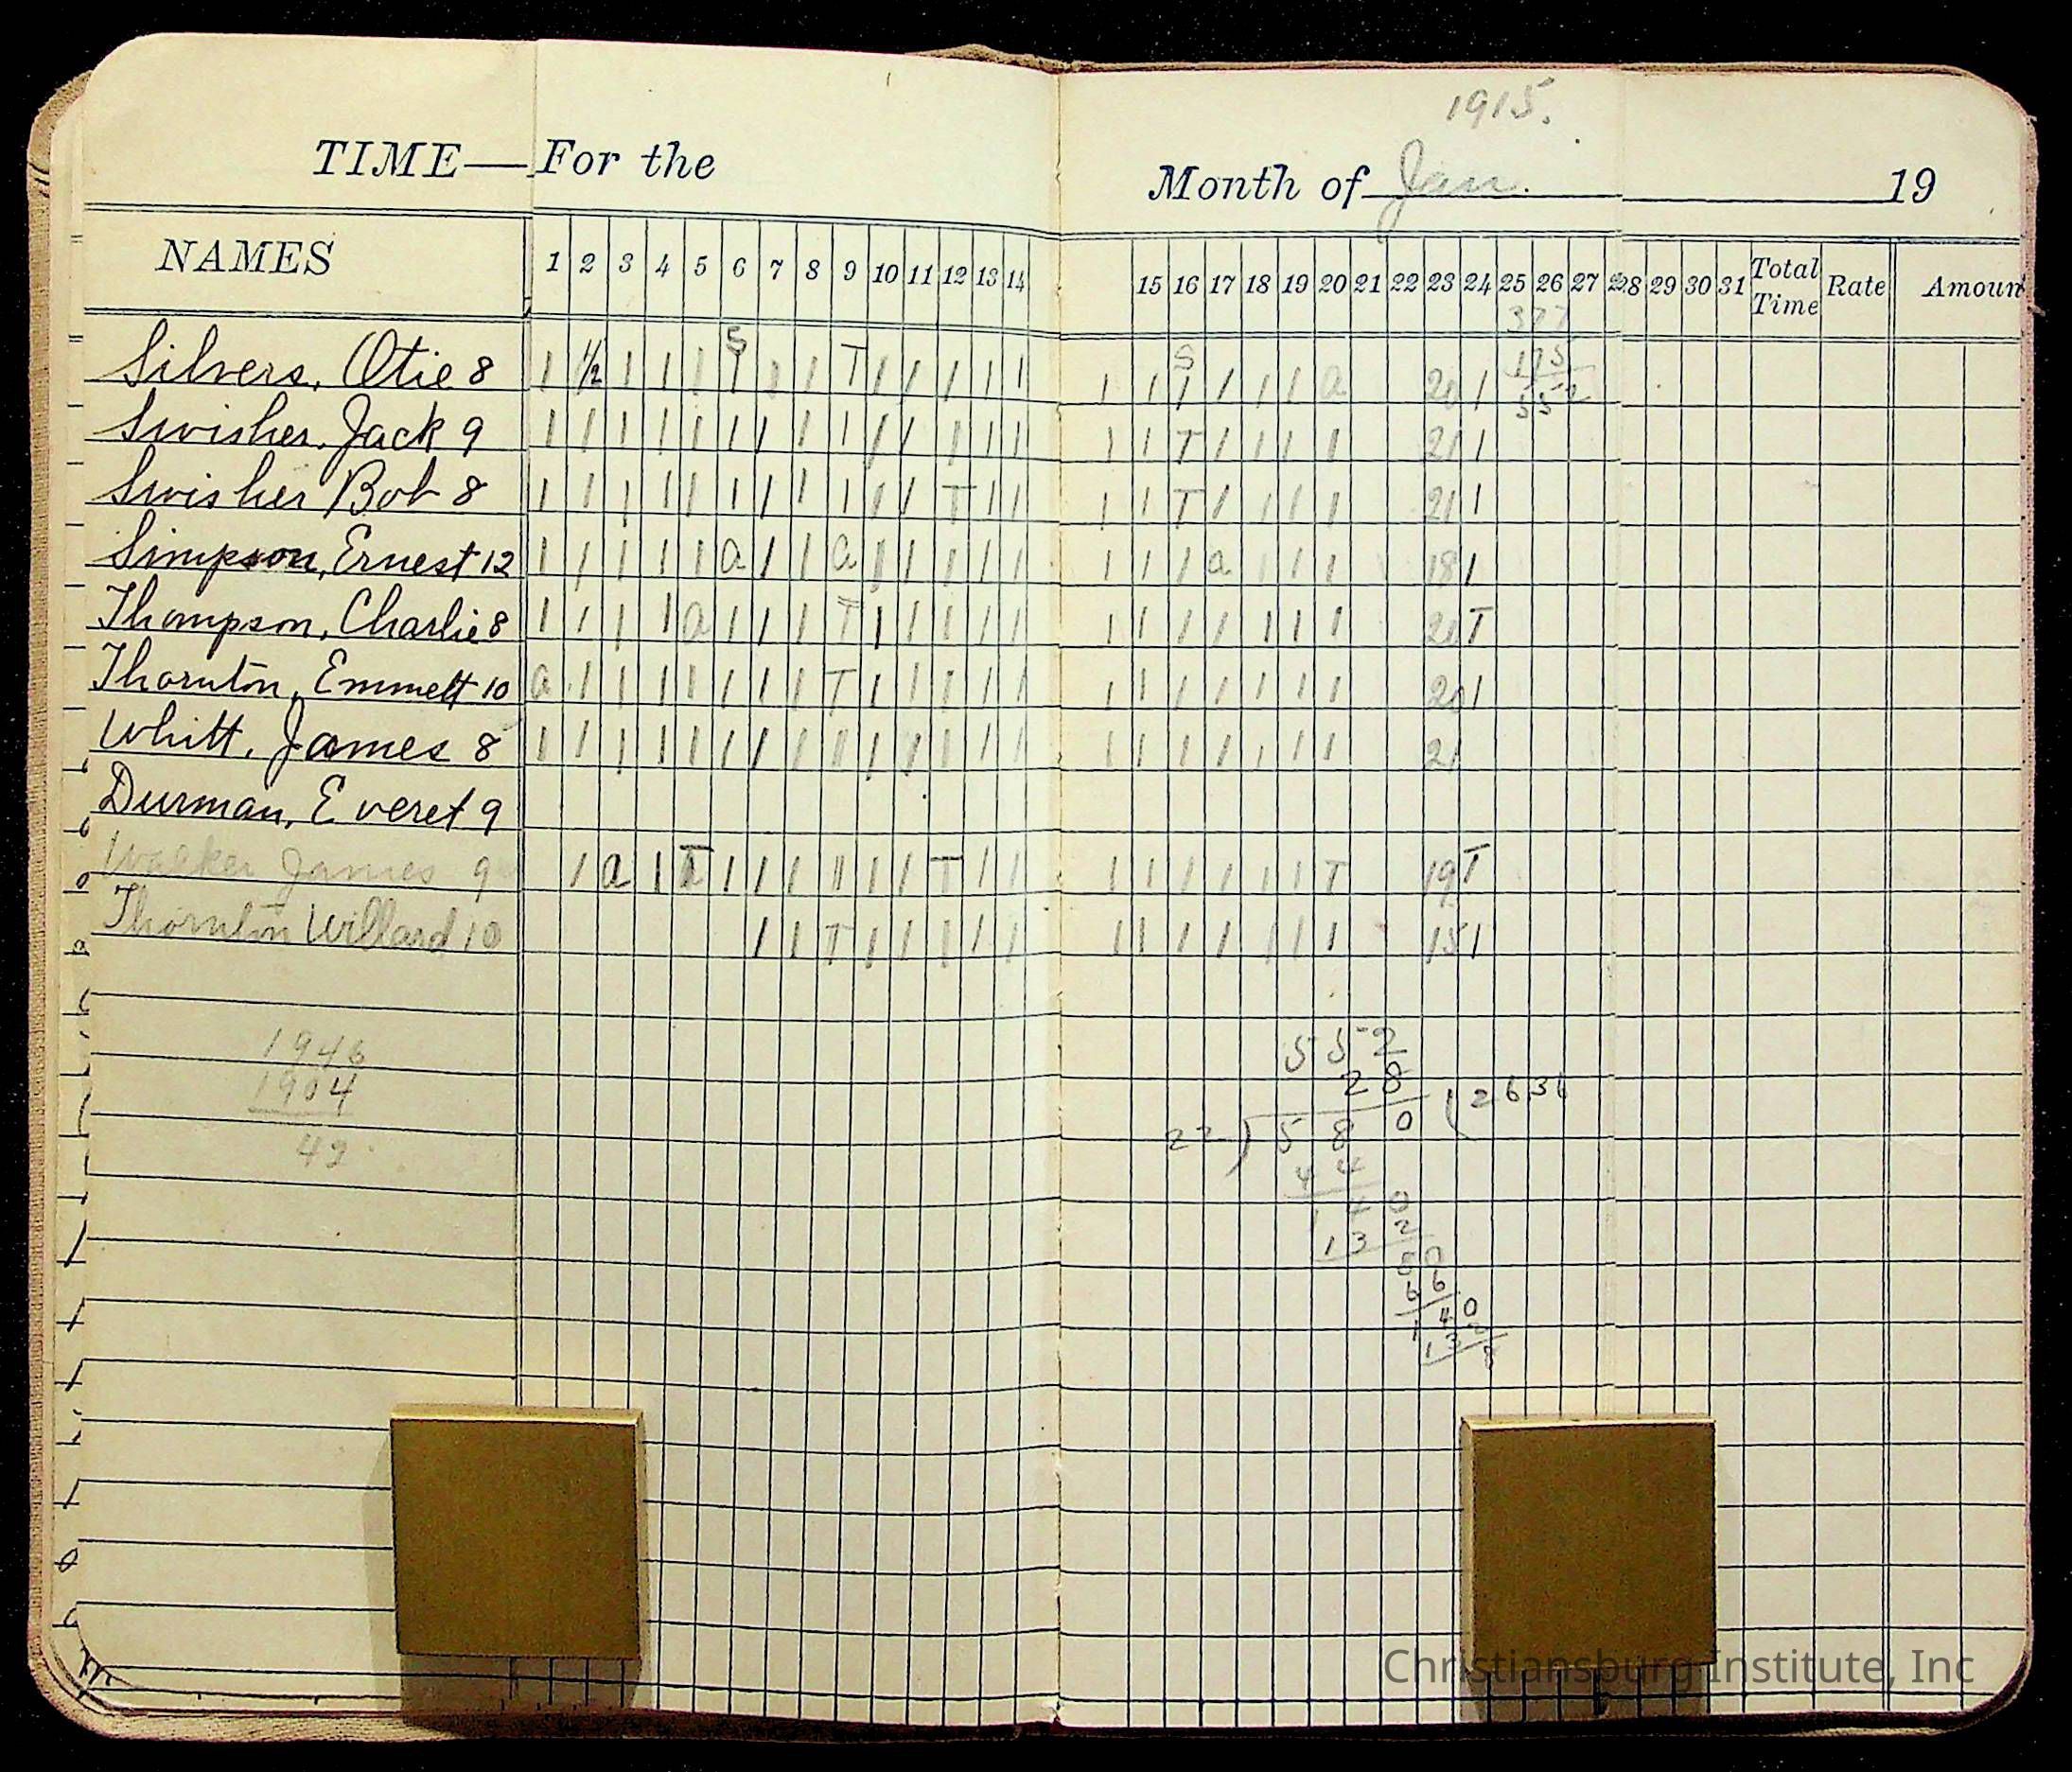 1915.
TIME—For the Month of Jan. 19
NAMES 1 2 3 4 5 6 7 8 9 10 11 12 13 14 15 16 17 18 19 20 21 22 23 24 25 26 27 28 29 30 31 Total Time Rate Amoun
377
Silvers, Otie 8 1 1/2 1 1 1 S 1 1 1 T 1 1 1 1 1 1 1 S 1 1 1 1 a 20 1 175
552
Swisher, Jack 9 1 1 1 1 1 1 1 1 1 1 1 1 1 1 1 1 T 1 1 1 1 21 1
Swisher Bob 8 1 1 1 1 1 1 1 1 1 1 1 T 1 1 1 1 T 1 1 1 1 21 1
Simpson, Ernest 12 1 1 1 1 1 a 1 1 a 1 1 1 1 1 1 1 1 a 1 1 1 18 1
Thompson, Charlie 8 1 1 1 1 a 1 1 1 T 1 1 1 1 1 1 1 1 1 1 1 1 20 T
Thornton, Emmett 10 a 1 1 1 1 1 1 1 T 1 1 1 1 1 1 1 1 1 1 1 1 20 1
Whitt, James 8 1 1 1 1 1 1 1 1 1 1 1 1 1 1 1 1 1 1 1 1 1 21
Durman, Everet 9
Walker James 9 1 a 1 T 1 1 1 1 1 1 T 1 1 1 1 1 1 1 1 T 19 T
Thornton Willard 10 1 1 T 1 1 1 1 1 1 1 1 1 1 1 1 15 1
1946
1904
42
552
28
22 ) 580 ( 2636
44
140
132
80
66
140
132
8
Christiansburg Institute, Inc